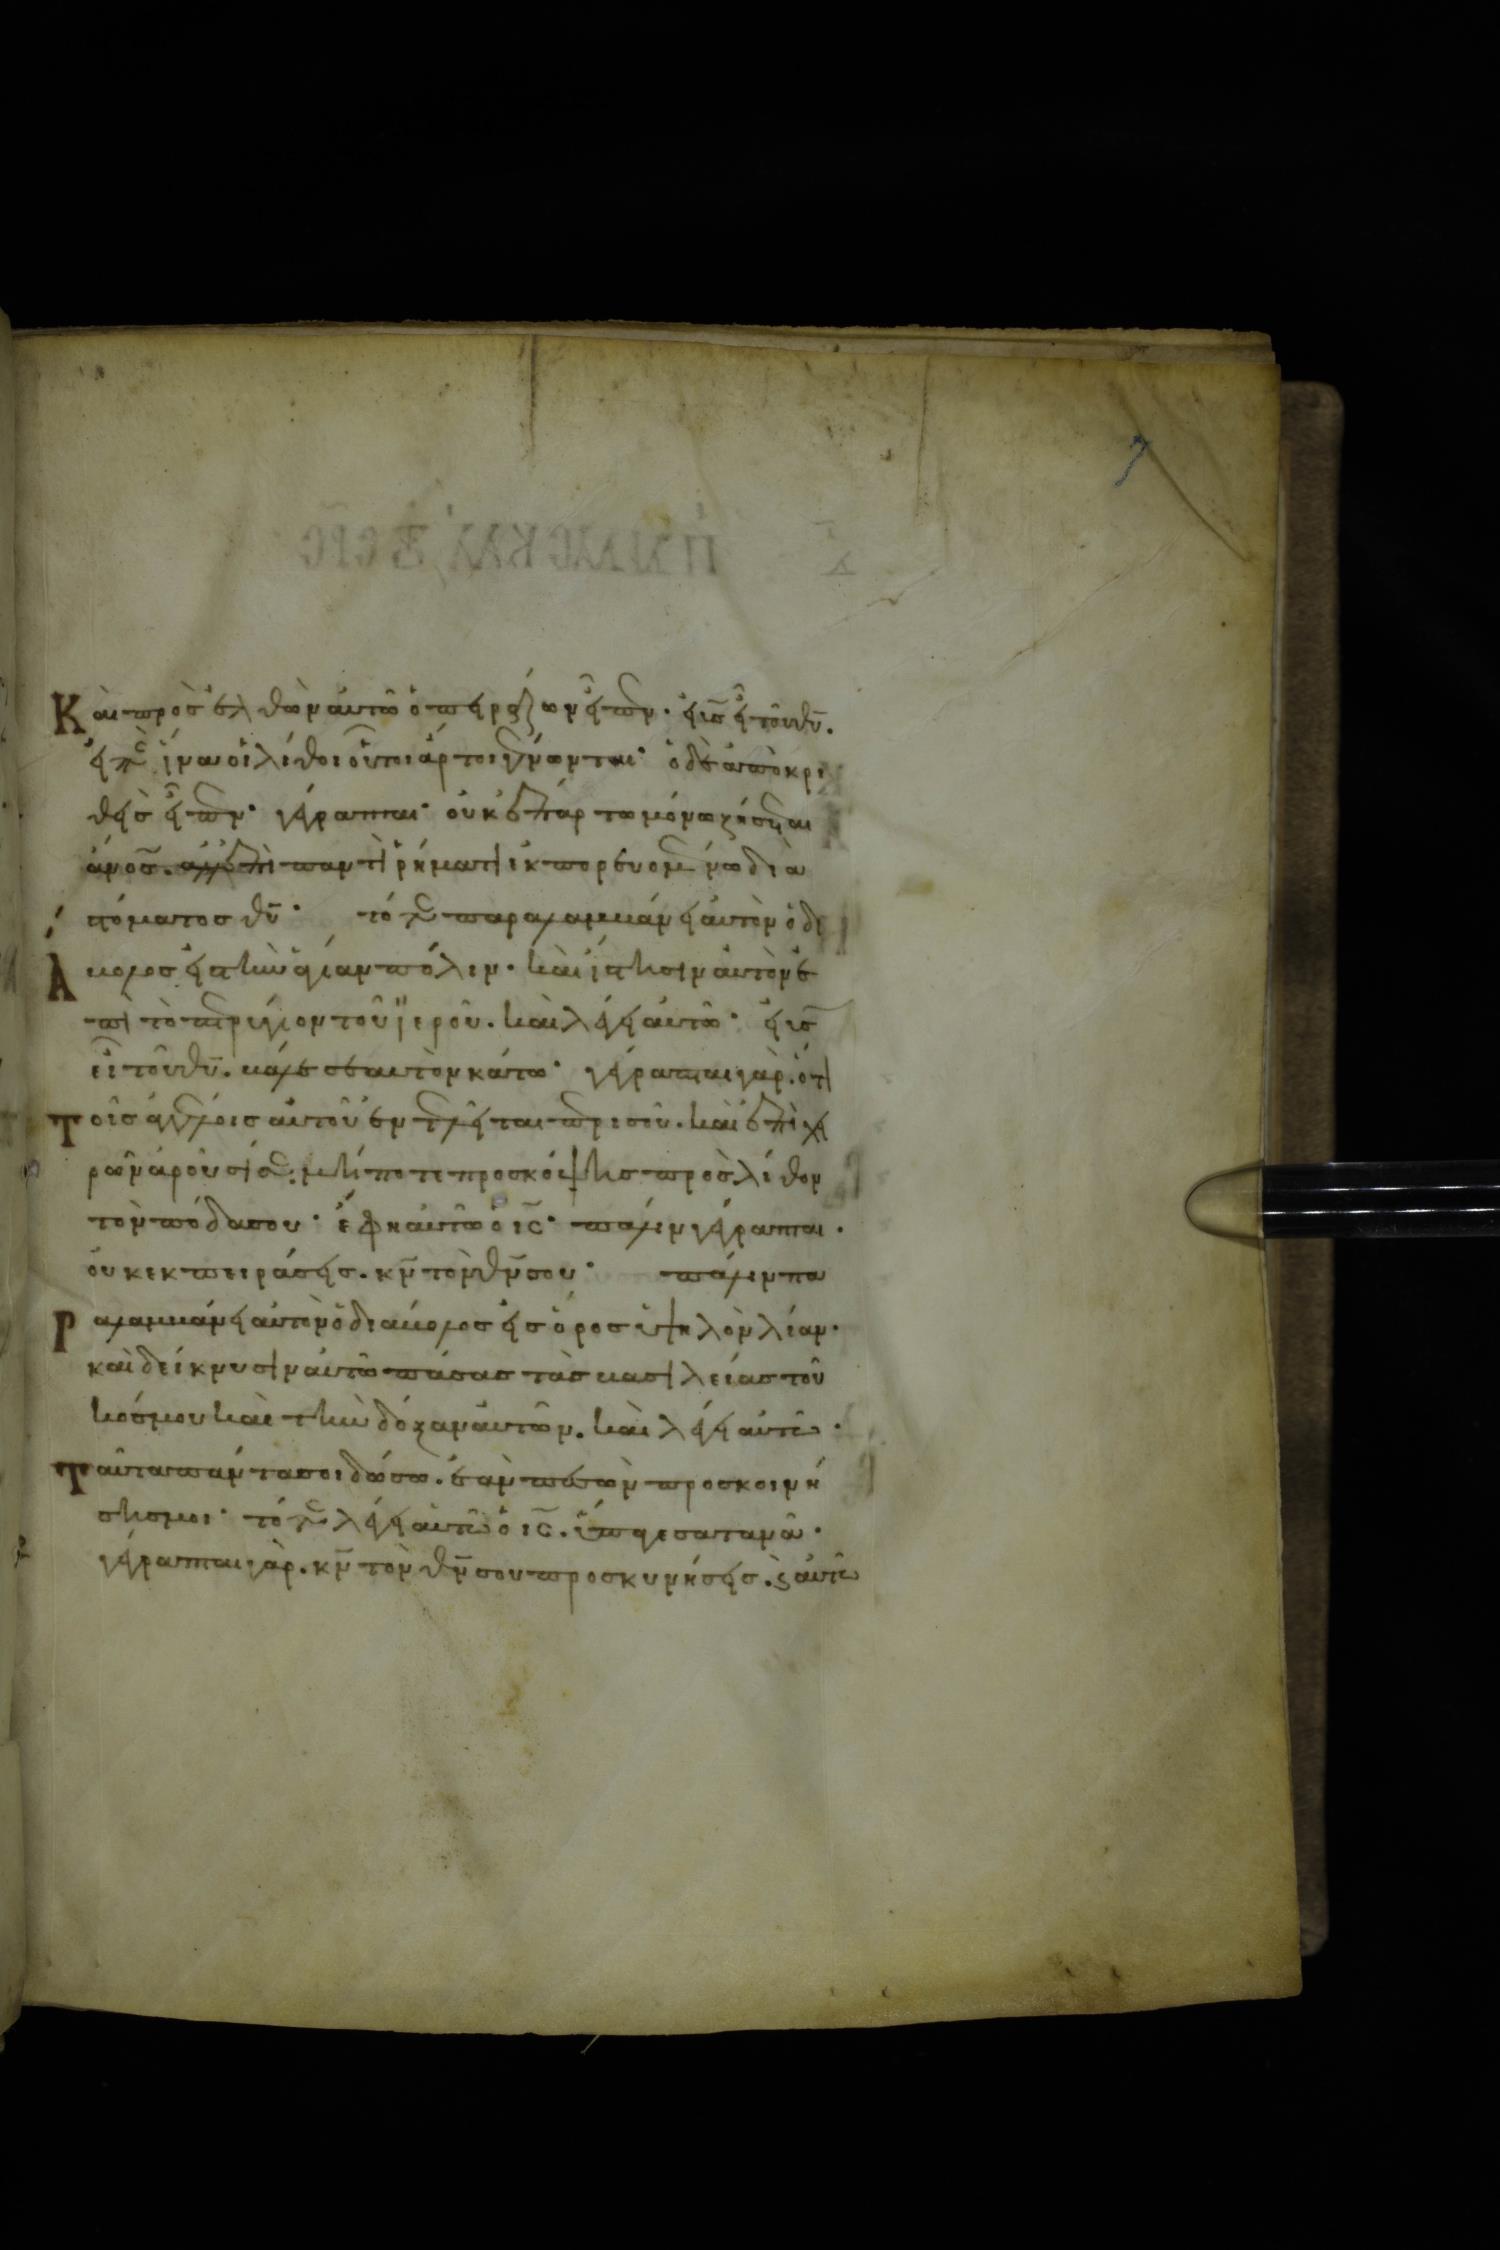 7
Καὶ προσελθὼν αὐτῶ ὁ πειράζων εἶπεν· εἰ υ̅ς̅ εἶ τοῦ θ̅υ̅.
εἰπὲ ἵνα οἱ λίθοι οὗτοι ἄρτοι γένωνται· ὁ δὲ ἀποκρι
θεὶς εἶπεν· γέγραπται· οὐκ ἐπ' ἄρτω μόνω ζήσεται
ἄν̅ο̅ς̅. ἀλλ' ἐπὶ παντὶ ῥήματι ἐκπορευομένω διὰ
στόματος θ̅υ̅· τότε παραλαμβάνει αὐτὸν ὁ δι
άβολος εἰς τὴν ἁγίαν πόλιν. καὶ ἵστησιν αὐτὸν ἐ
πὶ τὸ πτερύγιον τοῦ ἱεροῦ. καὶ λέγει αὐτῶ· εἰ υ̅ς̅
εἶ τοῦ θ̅υ̅. βάλε σεαυτὸν κάτω· γέγραπται γὰρ. ὅτι
Τοῖς ἀγγέλοις αὐτοῦ ἐντελεῖται περὶ σοῦ. καὶ ἐπὶ χει
ρῶν ἀροῦσί σε. μήποτε προσκόψης πρὸς λίθον
τὸν πόδα σου· ἔφη αὐτῶ ὁ ι̅ς̅· πάλιν γέγραπται·
οὐκ ἐκπειράσεις. κ̅ν̅ τὸν θ̅ν̅ σου· πάλιν πα
Ραλαμβάνει αὐτὸν ὁ διάβολος εἰς ὄρος ὑψηλὸν λίαν·
καὶ δείκνυσιν αὐτῶ πάσας τὰς βασιλείας τοῦ
κόσμου καὶ τὴν δόξαν αὐτῶν. καὶ λέγει αὐτῶ·
Ταῦτα πάντα σοι δώσω. ἐὰν πεσὼν προσκυνή
σης μοι· τότε λέγει αὐτῶ ὁ ι̅ς̅. ὕπαγε σατανᾶ·
γέγραπται γὰρ. κ̅ν̅ τὸν θ̅ν̅ σου προσκυνήσεις. ϗ αὐτῶ